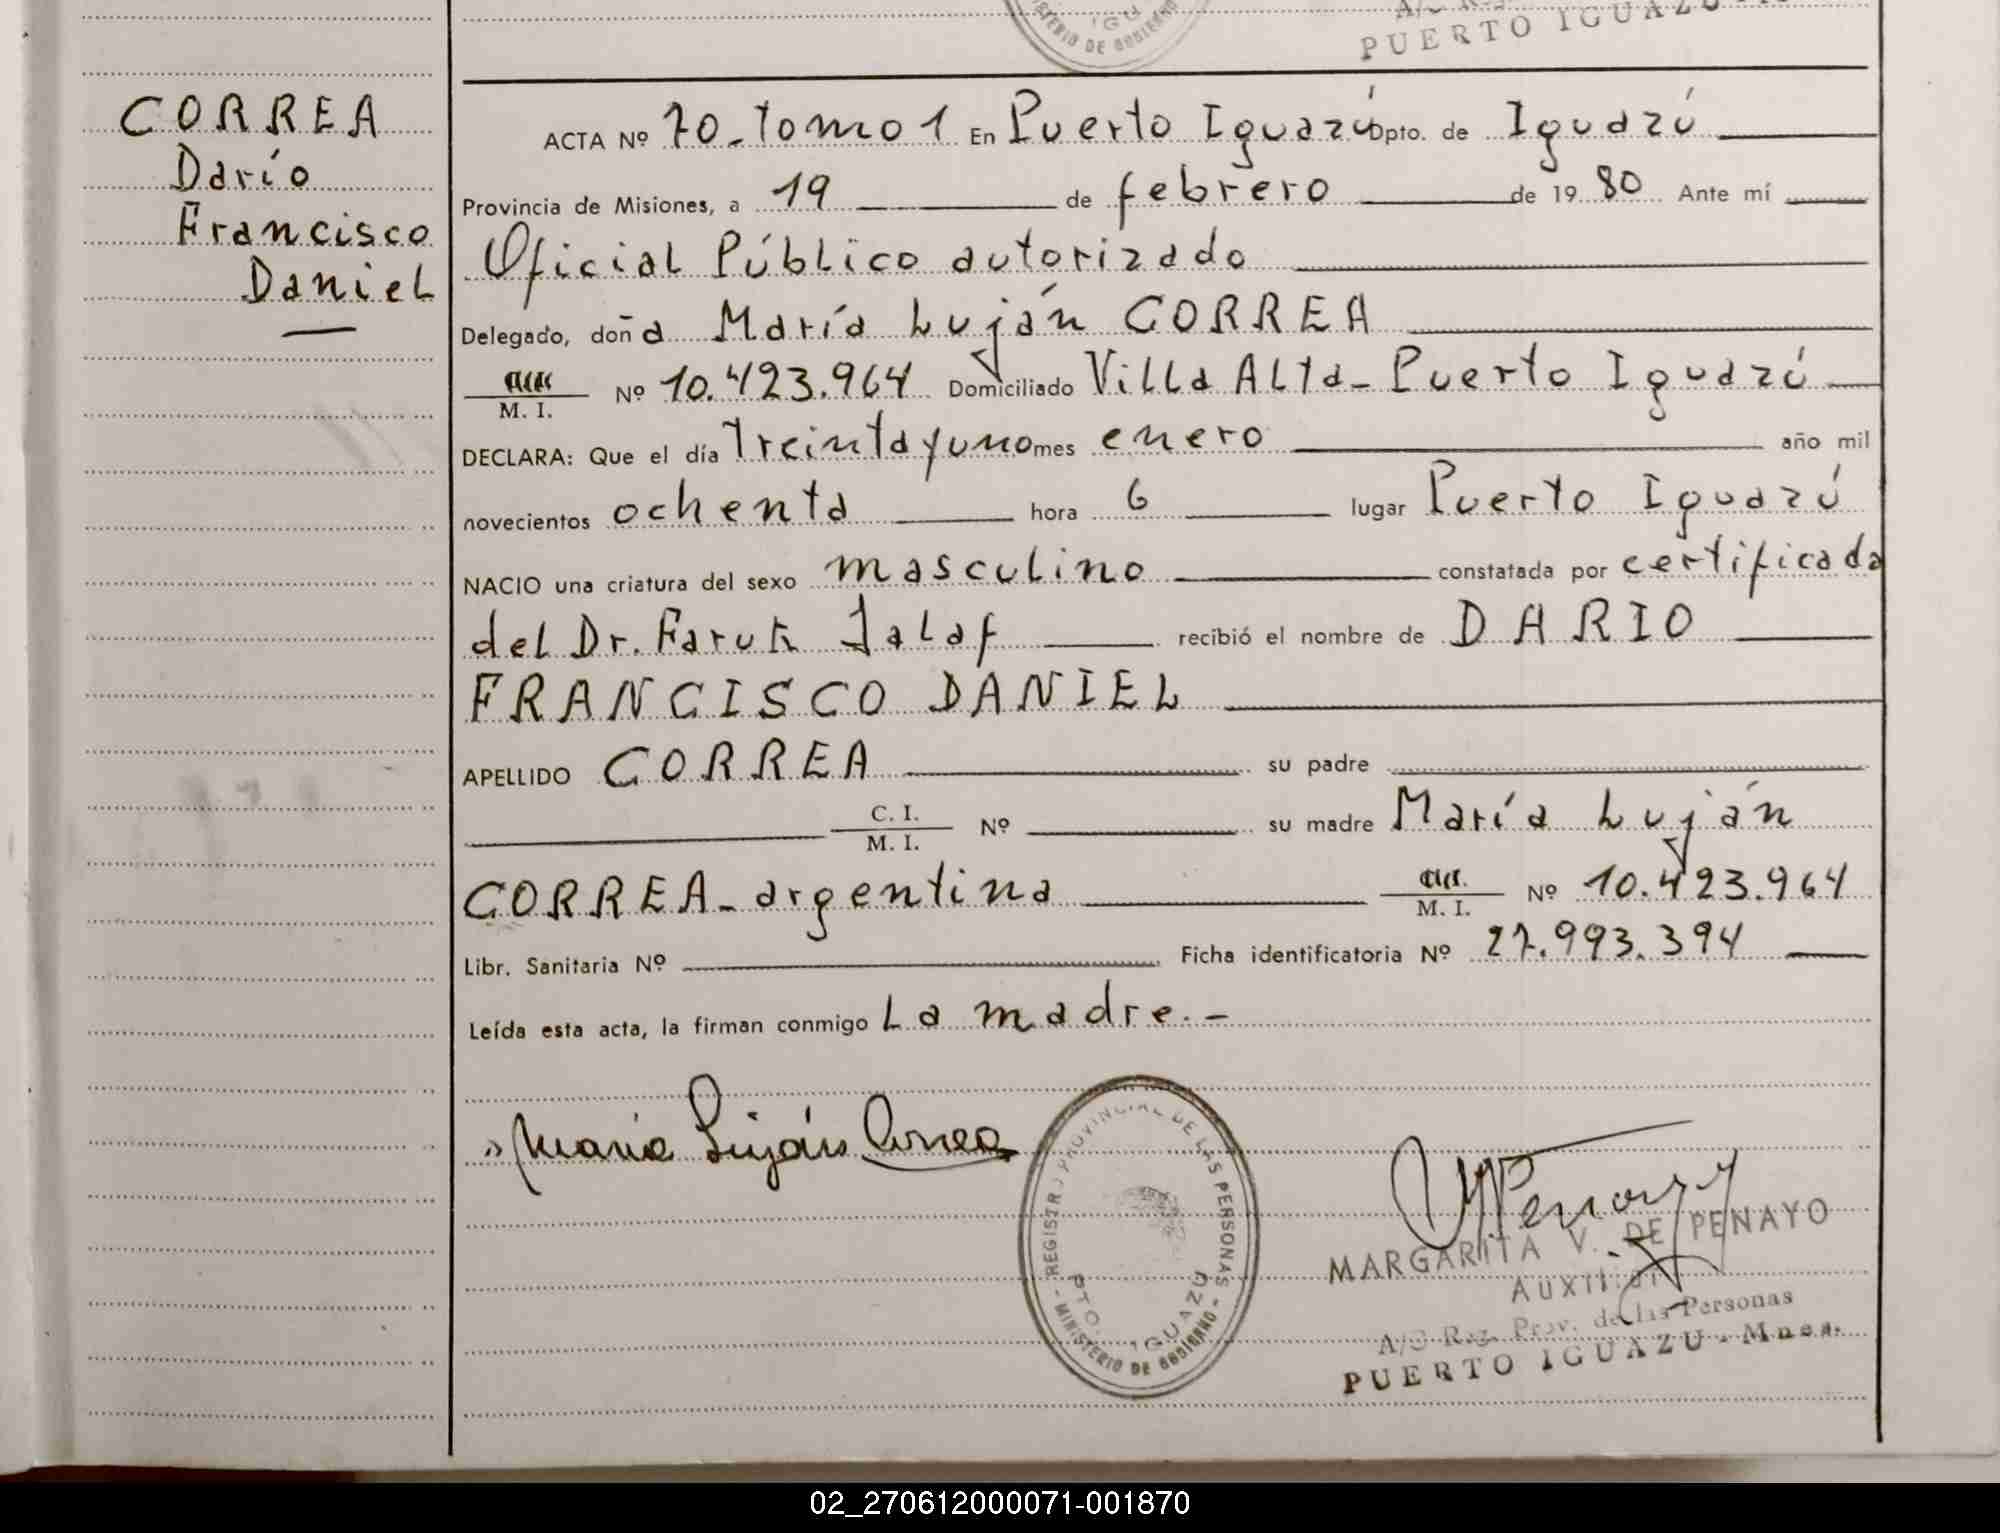 A/C R
PUERTO IGUAZU
IGU
MINISTERIO DE GOBIERNO
CORREA
Darío
Francisco
Daniel
ACTA Nº 70_tomo 1 En Puerto Iguazú Dpto. de Iguazú
Provincia de Misiones, a 19 de febrero de 1980 Ante mí
Oficial Público autorizado
Delegado, doña María Luján CORREA
M. I. Nº 10.423.964 Domiciliado Villa Alta_ Puerto Iguazú
DECLARA: Que el día treintayuno mes enero año mil
novecientos ochenta hora 6 lugar Puerto Iguazú
NACIO una criatura del sexo masculino constatada por certificado
del Dr. Faruk Jalaf recibió el nombre de DARIO
FRANCISCO DANIEL
APELLIDO CORREA su padre
C. I.
M. I. Nº su madre María Luján
CORREA_ argentina M. I. Nº 10.423.964
Libr. Sanitaria Nº Ficha identificatoria Nº 27.993.394
Leída esta acta, la firman conmigo La madre.-
María Luján Correa
REGISTRO PROVINCIAL DE LAS PERSONAS
PTO. IGUAZU
- MINISTERIO DE GOBIERNO -
MARGARITA V. DE PENAYO
AUXILIAR
A/C Reg. Prov. de las Personas
PUERTO IGUAZU - Mnes.
02_270612000071-001870